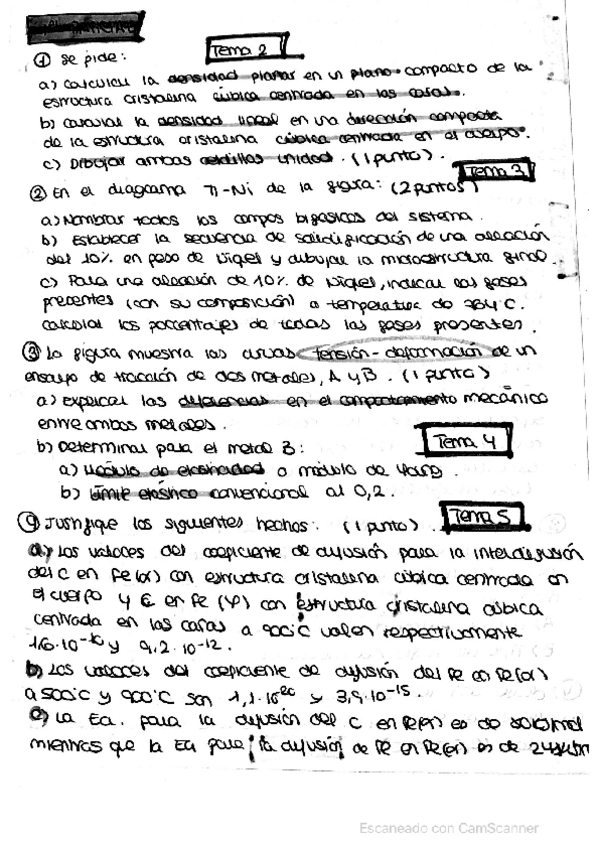 Tema 2
① Se pide:
a) calcular la densidad planar en un plano compacto de la
estructura cristalina cúbica centrada en las caras.
b) calcular la densidad lineal en una dirección compacta
de la estructura cristalina cúbica centrada en el cuerpo.
c) Dibujar ambas celdillas unidad. (1 punto).
Tema 3
② En el diagrama Ti-Ni de la figura: (2 puntos)
a) Nombrar todos los campos bifásicos del sistema.
b) Establecer la secuencia de solidificación de una aleación
del 10% en peso de Níquel y dibujar la microestructura final.
c) Para una aleación de 10% de Níquel, indicar las fases
presentes (con su composición) a temperatura de ºC.
calcular los porcentajes de todas las fases presentes.
③ La figura muestra las curvas tensión-deformación de un
ensayo de tracción de dos metales, A y B. (1 punto)
a) Explicar las diferencias en el comportamiento mecánico
entre ambos metales.
b) Determinar para el metal B:
Tema 4
a) Módulo de elasticidad o módulo de Young.
b) límite elástico convencional al 0,2.
Tema 5
④ Justifique los siguientes hechos: (1 punto)
a) Los valores del coeficiente de difusión para la interdifusión
del C en Fe(α) con estructura cristalina cúbica centrada en
el cuerpo y C en Fe (γ) con estructura cristalina cúbica
centrada en las caras a 900ºC valen respectivamente
1,6·10⁻¹⁰ y 9,2·10⁻¹².
b) Los valores del coeficiente de difusión del Fe en Fe(α)
a 500ºC y 900ºC son y 3,9·10⁻¹⁵.
c) La Ea. para la difusión del C en es de
mientras que la Ea para la difusión de Fe en es de
Escaneado con CamScanner